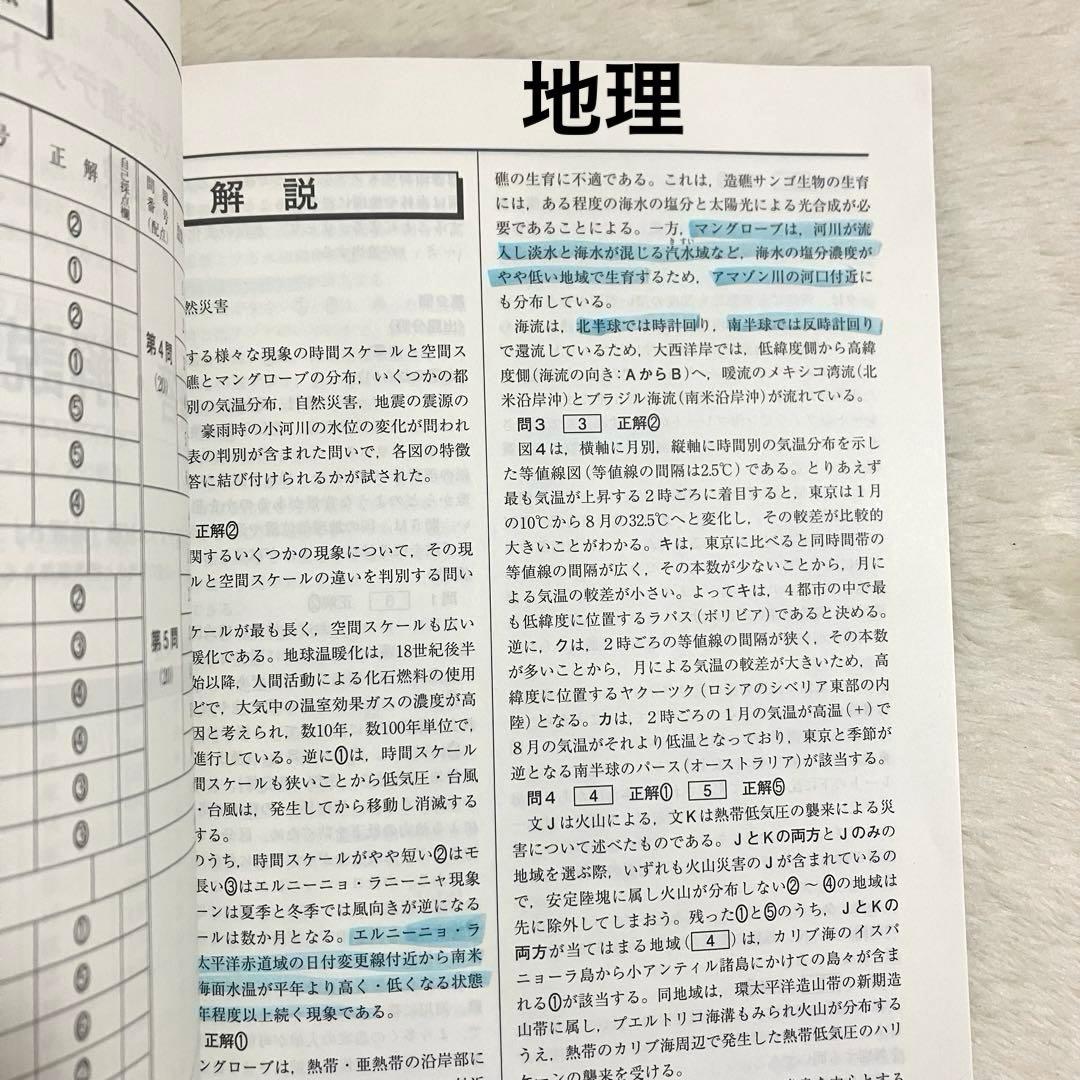 地理
号
正解
自己採点欄
問題番号
(配点)
②
①
②
①
⑤
⑤
④
②
③
④
④
③
③
①
⑤
②
第4問
(20)
第5問
(20)
解説
然災害
する様々な現象の時間スケールと空間ス
礁とマングローブの分布，いくつかの都
別の気温分布，自然災害，地震の震源の
豪雨時の小河川の水位の変化が問われ
表の判別が含まれた問いで，各図の特徴
答に結び付けられるかが試された。
正解②
関するいくつかの現象について，その現
ルと空間スケールの違いを判別する問い
ケールが最も長く，空間スケールも広い
暖化である。地球温暖化は，18世紀後半
始以降，人間活動による化石燃料の使用
どで，大気中の温室効果ガスの濃度が高
因と考えられ，数10年，数100年単位で，
進行している。逆に①は，時間スケール
間スケールも狭いことから低気圧・台風
・台風は，発生してから移動し消滅する
する。
のうち，時間スケールがやや短い②はモ
長い③はエルニーニョ・ラニーニャ現象
ーンは夏季と冬季では風向きが逆になる
ールは数か月となる。エルニーニョ・ラ
太平洋赤道域の日付変更線付近から南米
海面水温が平年より高く・低くなる状態
年程度以上続く現象である。
正解①
ングローブは，熱帯・亜熱帯の沿岸部に
礁の生育に不適である。これは，造礁サンゴ生物の生育
には，ある程度の海水の塩分と太陽光による光合成が必
要であることによる。一方，マングローブは，河川が流
入し淡水と海水が混じる汽水域など，海水の塩分濃度が
やや低い地域で生育するため，アマゾン川の河口付近に
も分布している。
海流は，北半球では時計回り，南半球では反時計回り
で還流しているため，大西洋岸では，低緯度側から高緯
度側(海流の向き：AからB)へ，暖流のメキシコ湾流(北
米沿岸沖)とブラジル海流(南米沿岸沖)が流れている。
問3 3 正解②
図4は，横軸に月別，縦軸に時間別の気温分布を示し
た等値線図(等値線の間隔は2.5℃)である。とりあえず
最も気温が上昇する2時ごろに着目すると，東京は1月
の10℃から8月の32.5℃へと変化し，その較差が比較的
大きいことがわかる。キは，東京に比べると同時間帯の
等値線の間隔が広く，その本数が少ないことから，月に
よる気温の較差が小さい。よってキは，4都市の中で最
も低緯度に位置するラパス(ボリビア)であると決める。
逆に，クは，2時ごろの等値線の間隔が狭く，その本数
が多いことから，月による気温の較差が大きいため，高
緯度に位置するヤクーツク(ロシアのシベリア東部の内
陸)となる。カは，2時ごろの1月の気温が高温(+)で
8月の気温がそれより低温となっており，東京と季節が
逆となる南半球のパース(オーストラリア)が該当する。
問4 4 正解① 5 正解⑤
文Jは火山による，文Kは熱帯低気圧の襲来による災
害について述べたものである。JとKの両方とJのみの
地域を選ぶ際，いずれも火山災害のJが含まれているの
で，安定陸塊に属し火山が分布しない②～④の地域は
先に除外してしまおう。残った①と⑤のうち，JとKの
両方が当てはまる地域(4)は，カリブ海のイスパ
ニョーラ島から小アンティル諸島にかけての島々が含ま
れる①が該当する。同地域は，環太平洋造山帯の新期造
山帯に属し，プエルトリコ海溝もみられ火山が分布する
うえ，熱帯のカリブ海周辺で発生した熱帯低気圧のハリ
ケーンの襲来を受ける。